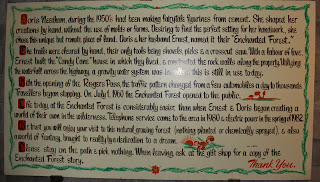 Doris Needham, during the 1950's had been making fairytale figurines from cement. She shaped her
creations by hand, without the use of molds or forms. Desiring to find the perfect setting for her handiwork, she
chose this unique but remote piece of land. Doris & her husband Ernest, named it their "Enchanted Forest."
The trails were cleared by hand, their only tools being shovels, picks & a crosscut saw. With a labour of love,
Ernest built the "Candy Cane" house in which they lived, & constructed the rock walls along the property. Utilizing
the waterfall across the highway, a gravity water system was installed, this is still in use today.
With the opening of the Rogers Pass the traffic pattern changed from a few automobiles a day to thousands.
Travellers began stopping. On July 1, 1960 the Enchanted Forest opened to the public.
Life today at the Enchanted Forest is considerably easier than when Ernest & Doris began creating a
world of their own in the wilderness. Telephone service came to the area in 1980 & electric power in the spring of 1982
We trust you will enjoy your visit to this natural growing forest (nothing planted or chemically sprayed), & also
a world of fantasy, brought to reality by a dedication to a dream.
Please stay on the path & pick nothing. When leaving, ask at the gift shop for a copy of the
Enchanted Forest story.
Thank You.